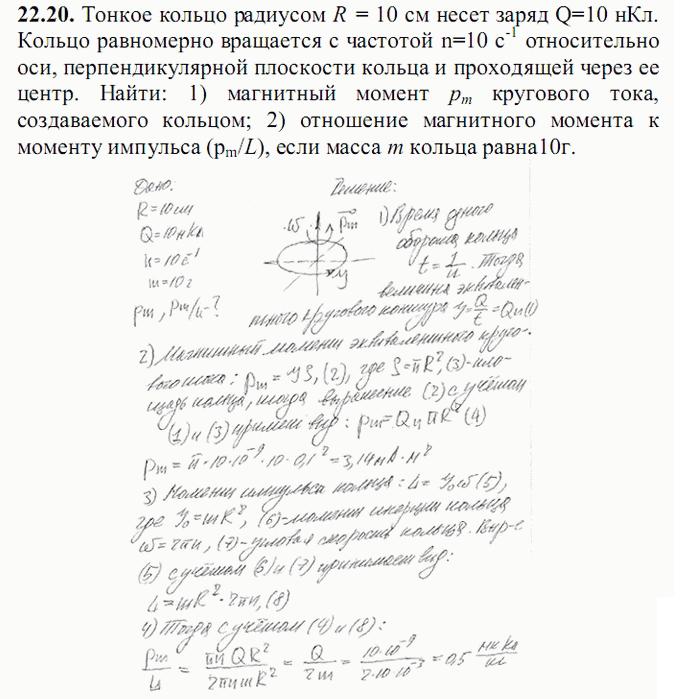 22.20. Тонкое кольцо радиусом R = 10 см несет заряд Q=10 нКл.
Кольцо равномерно вращается с частотой n=10 с-1 относительно
оси, перпендикулярной плоскости кольца и проходящей через ее
центр. Найти: 1) магнитный момент pm кругового тока,
создаваемого кольцом; 2) отношение магнитного момента к
моменту импульса (pm/L), если масса m кольца равна10г.
Дано:
R=10см
Q=10нКл
n=10с-1
m=10г
pm, pm/L-?
Решение:
ω pm
y
1) Время одного
оборота кольца
t = 1/n. Тогда
величина эквивален-
тного кругового контура y=Q/t=Qn(1)
2) Магнитный момент эквивалентного круго-
вого тока: pm = yS, (2), где S=πR², (3)-пло-
щадь кольца, тогда выражение (2) с учётом
(1) и (3) примет вид: pm=QnπR² (4)
pm = π·10·10⁻⁹·10·0,1²=3,14нА·м²
3) Момент импульса кольца: L= y₀ω(5),
где y₀=mR², (6)-момент инерции кольца
ω=2πn, (7)-угловая скорость кольца. Выр-е
(5) с учётом (6) и (7) принимает вид:
L=mR²·2πn, (8)
4) Тогда с учётом (4) и (8):
pm/L = πnQR²/2πnmR² = Q/2m = 10·10⁻⁹/2·10·10⁻³ = 0,5 мкКл/кг